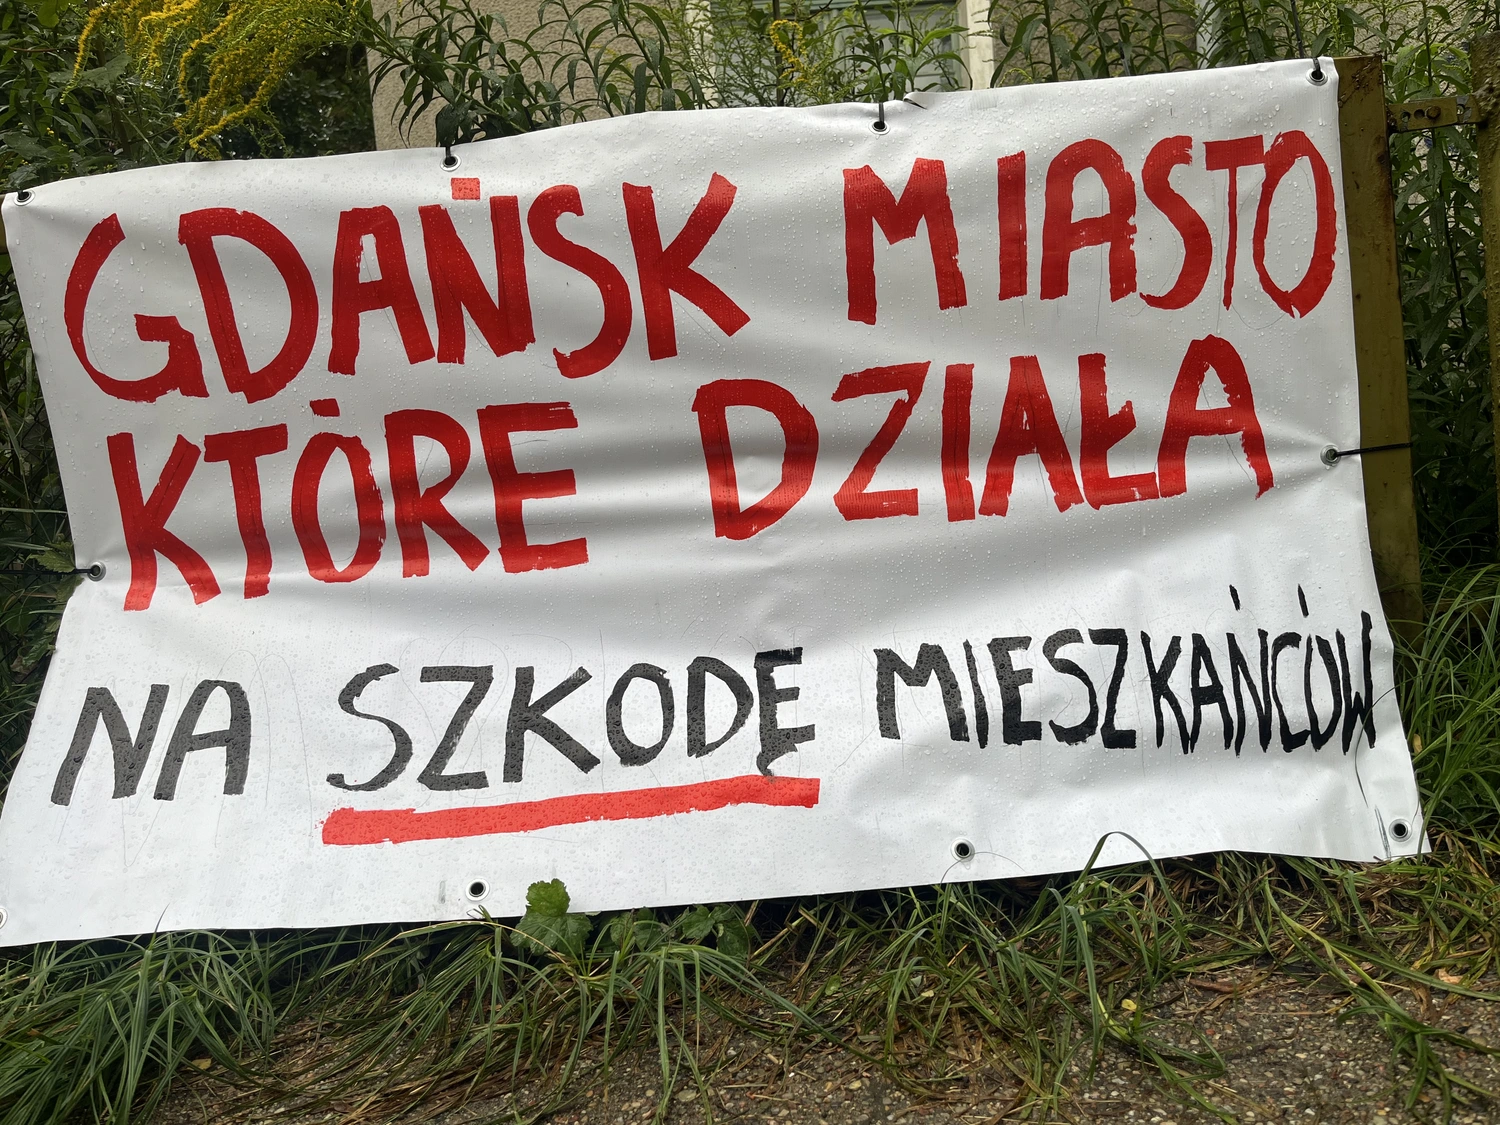 GDAŃSK MIASTO
KTÓRE DZIAŁA
NA SZKODĘ MIESZKAŃCÓW